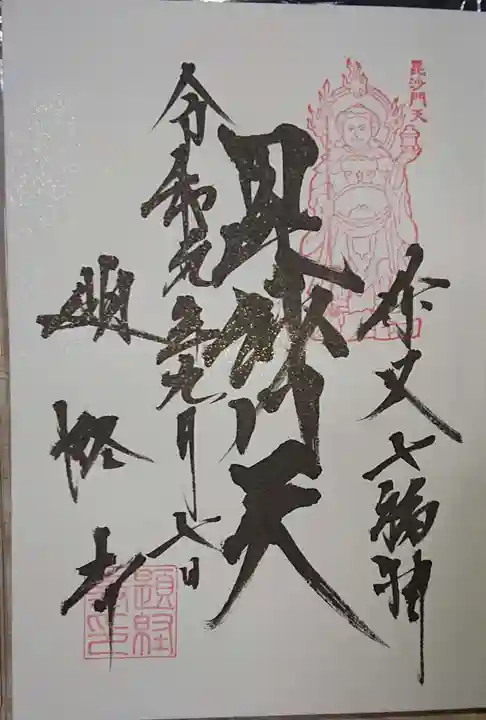 毘沙門天
柴又七福神
毘沙門天
令和元年九月七日
題経寺
題経